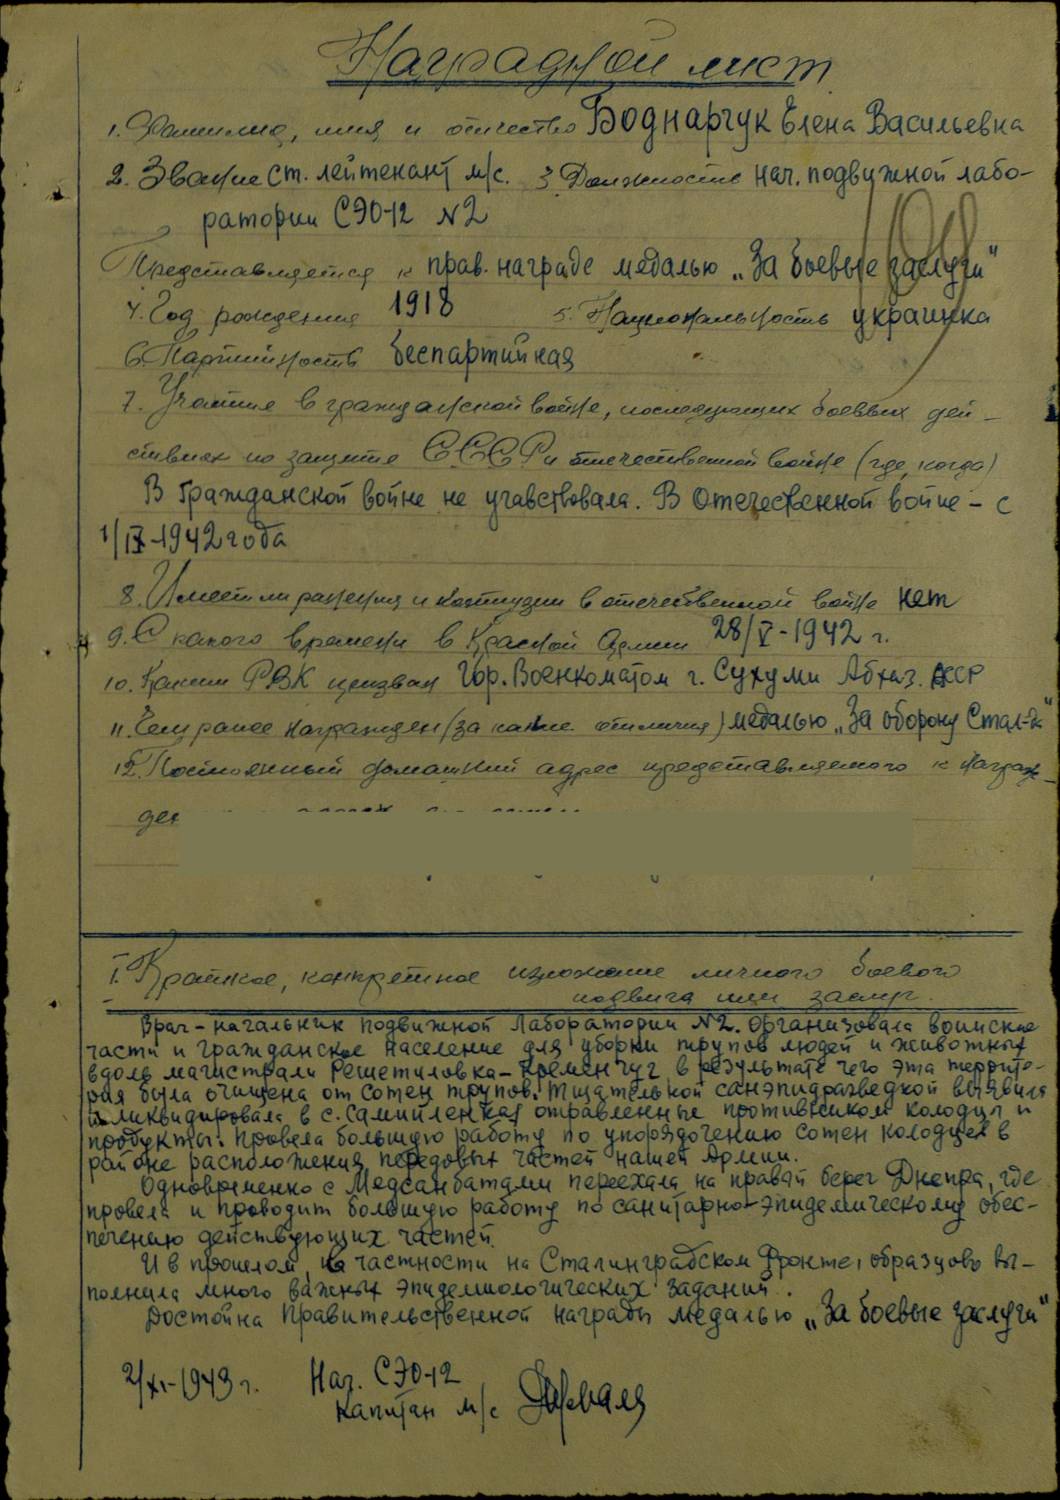 Наградной лист
1. Фамилия, имя и отчество Боднарчук Елена Васильевна
2. Звание ст. лейтенант м/с. 3. Должность нач. подвижной лабо-
ратории СЭО-12 №2
Представляется к прав. награде медалью „За боевые заслуги"
4. Год рождения 1918 5. Национальность украинка
6. Партийность беспартийная
7. Участие в гражданской войне, последующих боевых дей-
ствиях по защите СССР и отечественной войне (где, когда)
В Гражданской войне не учавствовала. В Отечественной войне - с
1/IX-1942 года
8. Имеет ли ранения и контузии в отечественной войне нет
9. С какого времени в Красной Армии 28/V-1942 г.
10. Каким РВК призван Гор. Военкоматом г. Сухуми Абхаз. АССР
11. Чем ранее награжден (за какие отличия) медалью „За оборону Стал-да"
12. Постоянный домашний адрес представляемого к награж-
I. Краткое, конкретное изложение личного боевого
подвига или заслуг.
Врач-начальник подвижной Лаборатории №2. Организовала воинские
части и гражданское население для уборки трупов людей и животных
вдоль магистрали Решетиловка-Кременчуг в результате чего эта террито-
рия была очищена от сотен трупов. Тщательной санэпидразведкой выявила
и ликвидировала в с. отравленные противником колодцы и
продукты. Провела большую работу по упорядочению сотен колодцев в
районе расположения передовых частей нашей Армии.
Одновременно с Медсанбатами переехала на правый берег Днепра, где
провела и проводит большую работу по санитарно-эпидемическому обес-
печению действующих частей.
И в прошлом, в частности на Сталинградском Фронте, образцово вы-
полнила много важных эпидемиологических заданий.
Достойна Правительственной награды медалью „За боевые заслуги"
2/XI-1943 г. Нач. СЭО-12
капитан м/с